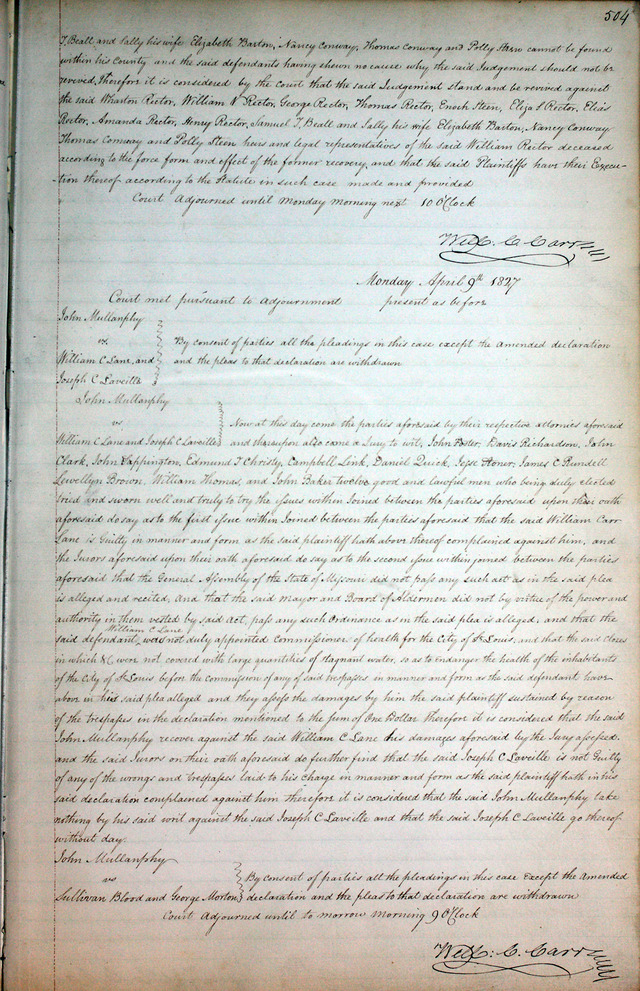 504
T, Beall and Sally his wife Elizabeth Barton, Nancy Conway, Thomas Conway and Polly Steen cannot be found
within his County and the said defendants having shown no cause why the said Judgement should not be
revived, Therefore it is considered by the court that the said Judgement stand and be revived against
the said Wharton Rector, William V Rector, George Rector, Thomas Rector, Enoch Steen, Eliza S Rector, Elias
Rector, Amanda Rector, Henry Rector, Samuel T, Beall and Sally his wife Elizabeth Barton, Nancy Conway
Thomas Conway and Polly Steen heirs and legal representatives of the said William Rector deceased
according to the force form and effect of the former recovery, and that the said Plaintiffs have their Execu-
tion thereof according to the Statute in such case made and provided
Court Adjourned until Monday morning next 10 OClock
Will. C. Carr
Monday April 9th 1827
Court met pursuant to adjournment present as before
John Mullanphy
vs
William C Lane, and
Joseph C Laveille
By consent of parties all the pleadings in this case except the amended declaration
and the pleas to that declaration are withdrawn
John Mullanphy
vs
William C Lane and Joseph C Laveille
Now at this day come the parties aforesaid by their respective attornies aforesaid
and thereupon also came a Jury to wit, John Foster, Davis Richardson, John
Clark, John Sappington, Edmund T Christy, Campbell Link, Daniel Quick, Jesse Honer, James C Rundell
Lewellyn Brown, William Thomas, and John Baker twelve good and lawful men who being duly elected
tried and sworn well and truly to try the issues within Joined between the parties aforesaid upon their oath
aforesaid do say as to the first issue within Joined between the parties aforesaid that the said William Carr
Lane is Guilty in manner and form as the said plaintiff hath above thereof complained against him, and
the Jurors aforesaid upon their oath aforesaid do say as to the second issue within joined between the parties
aforesaid that the General Assembly of the State of Missouri did not pass any such act as in the said plea
is alleged and recited, And that the said Mayor and Board of Aldermen did not by virtue of the power and
authority in them vested by said act, pass any such Ordinance as in the said plea is alleged, and that the
William C Lane
said defendant was not duly appointed Commissioner of health for the City of St Louis, and that the said closes
in which &c were not covered with large quantities of stagnant water, so as to endanger the health of the inhabitants
of the City of St Louis before the commission of any of said trespasses in manner and form as the said defendant have
above in his said plea alleged and they assess the damages by him the said plaintiff sustained by reason
of the trespasses in the declaration mentioned to the sum of One Dollar therefore it is considered that the said
John Mullanphy recover against the said William C Lane his damages aforesaid by the Jury assessed.
and the said Jurors on their oath aforesaid do further find that the said Joseph C Laveille is not Guilty
of any of the wrongs and trespasses laid to his charge in manner and form as the said plaintiff hath in his
said declaration complained against him therefore it is considered that the said John Mullanphy take
nothing by his said writ against the said Joseph C Laveille and that the said Joseph C Laveille go thereof
without day
John Mullanphy
vs
Sullivan Blood and George Morton
By consent of parties all the pleadings in this case Except the Amended
declaration and the pleas to that declaration are withdrawn
Court Adjourned until to morrow morning 9 OClock
Will: C. Carr